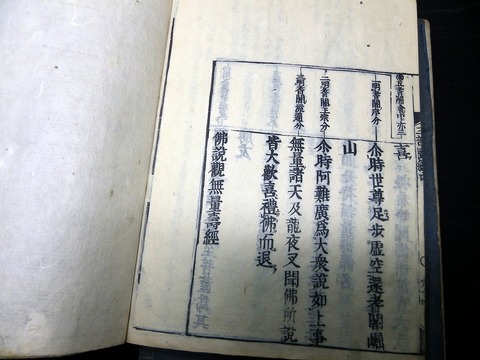 五耆闍會中亦三
喜
一明耆闍序分
尒時世尊足步虛空還耆闍崛
山
二明耆闍正宗分
尒時阿難廣爲大衆說如上事
三明耆闍流通分
無量諸天及龍夜叉聞佛所說
皆大歡喜禮佛而退
佛說觀無量壽經